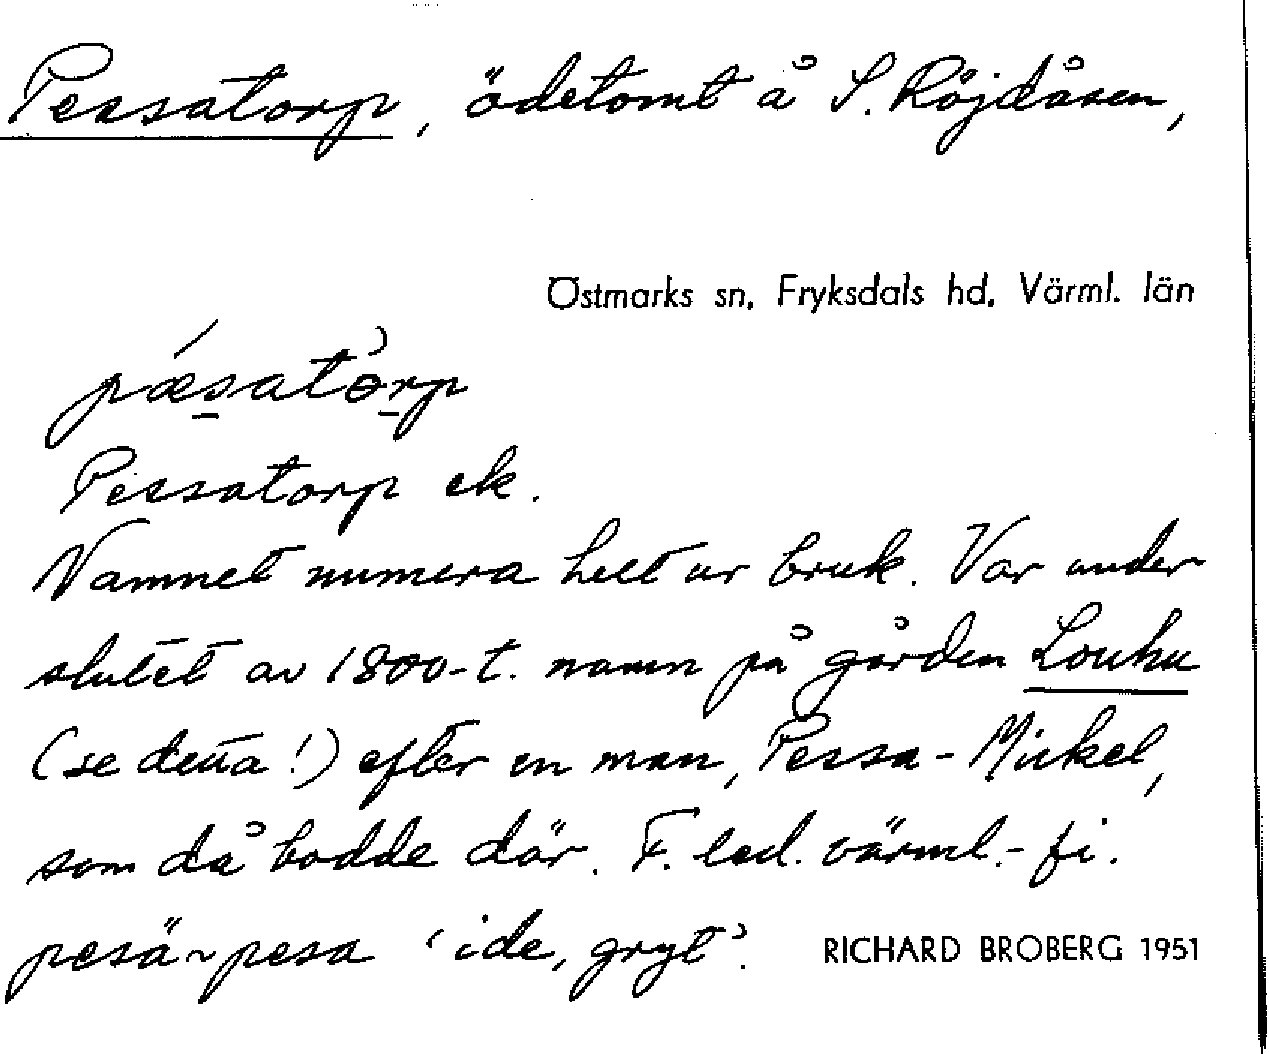 Pessatorp, ödetomt å S. Röjdåsen,
Östmarks sn, Fryksdals hd, Värml. län
pæsatɔrp
Pessatorp ek.
Namnet numera helt ur bruk. Var under
slutet av 1800-t. namn på gården Louhu
(se detta!) efter en man, Pessa-Mickel,
som då bodde där. F. led. värml.-fi.
pesä~pesa 'ide, gryt'. RICHARD BROBERG 1951